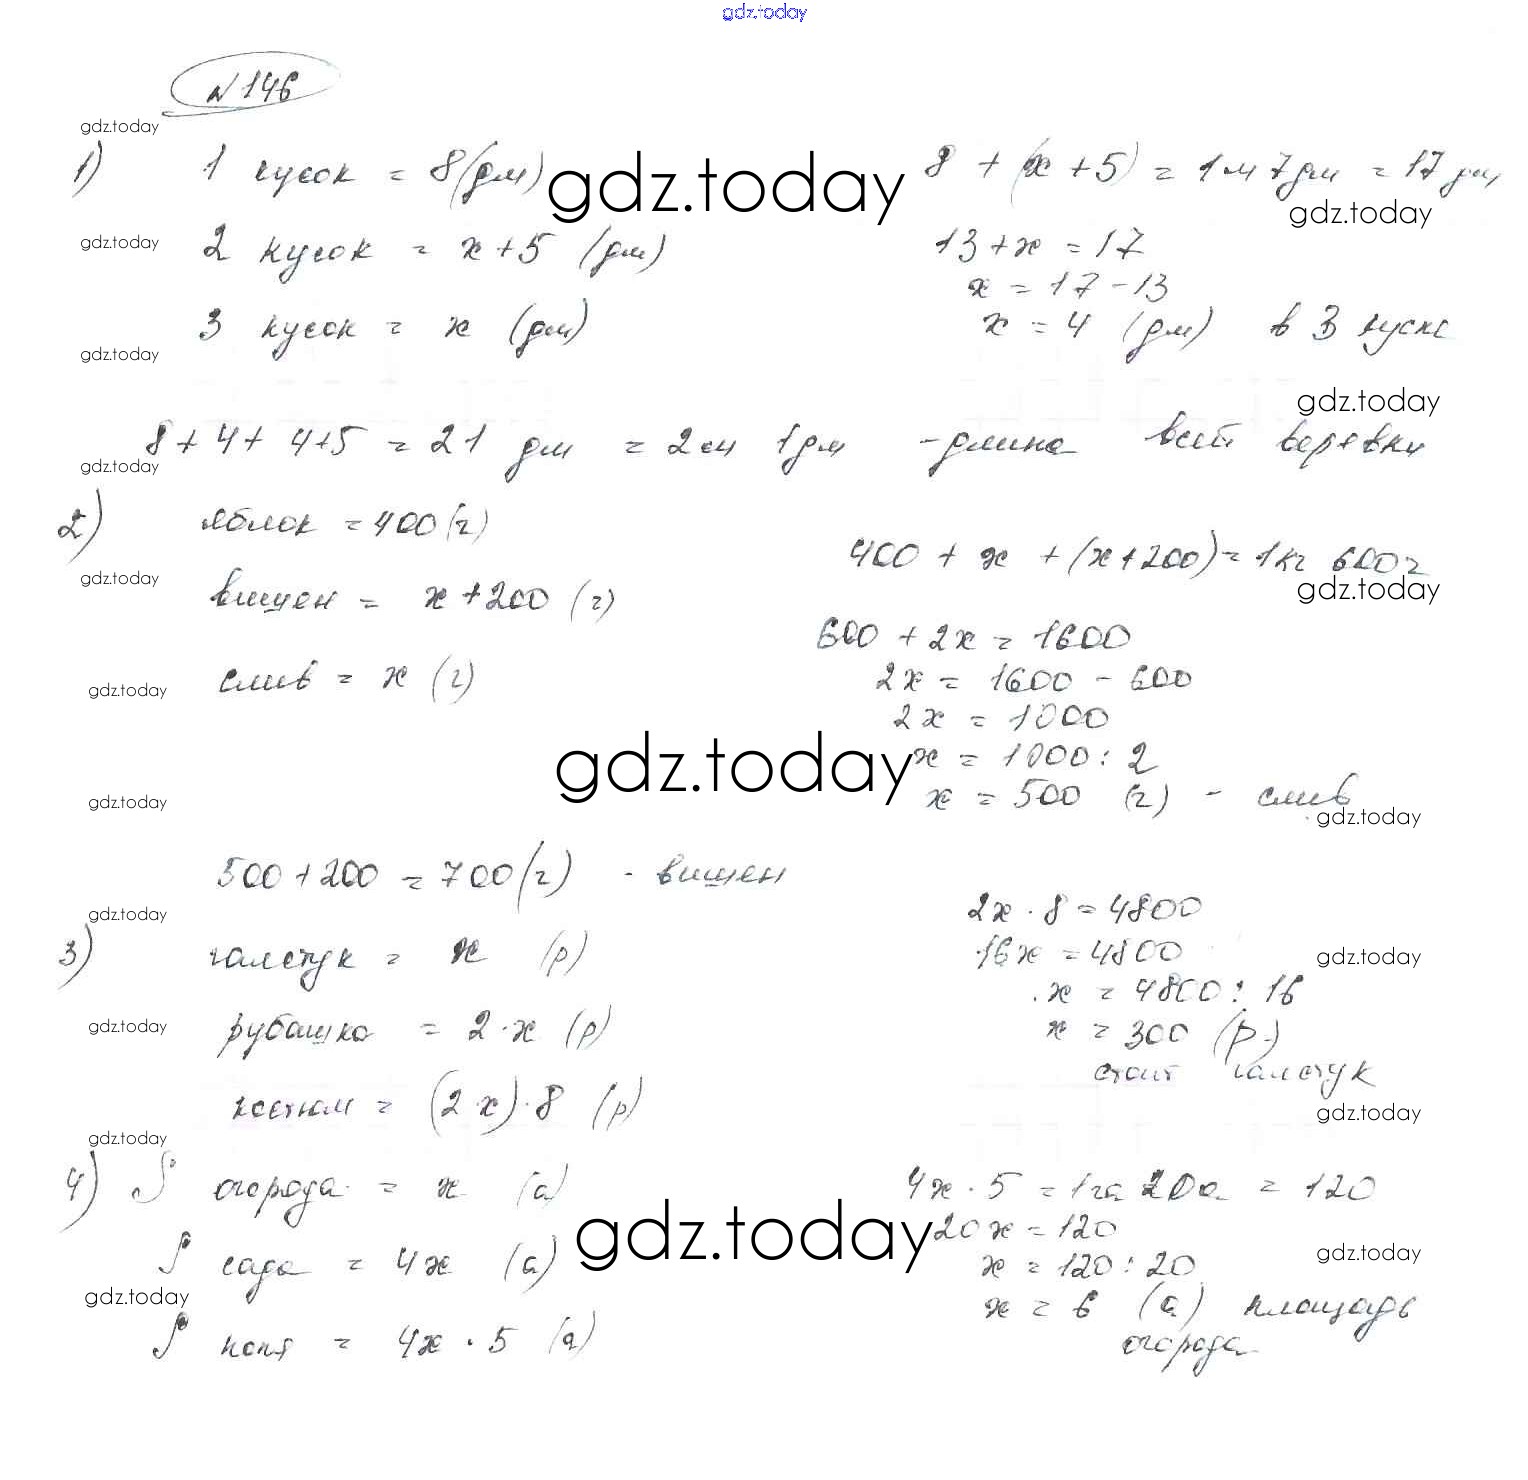 gdz.today
№146
gdz.today
1) 1 кусок = 8(дм) gdz.today 8 + (x + 5) = 1м 7дм = 17 дм
gdz.today
gdz.today 2 кусок = x + 5 (дм) 13 + x = 17
x = 17 - 13
3 кусок = x (дм) x = 4 (дм) в 3 куске
gdz.today
gdz.today
8 + 4 + 4+5 = 21 дм = 2м 1дм - длина всей веревки
gdz.today
2) яблок = 400 (г)
400 + x + (x + 200) = 1кг 600г
gdz.today
gdz.today
вишен = x + 200 (г)
600 + 2x = 1600
слив = x (г) 2x = 1600 - 600
gdz.today
2x = 1000
gdz.today x = 1000 : 2
x = 500 (г) - слив
gdz.today
gdz.today
500 + 200 = 700 (г) - вишен
gdz.today
2x · 8 = 4800
3) галстук = x (р) 16x = 4800
gdz.today
x = 4800 : 16
gdz.today рубашка = 2 · x (р) x = 300 (р.)
стоит галстук
костюм = (2 x) · 8 (р)
gdz.today
gdz.today
4) S огорода = x (а) 4x · 5 = 1га 20а = 120
gdz.today 20x = 120
S сада = 4x (а) x = 120 : 20
gdz.today
gdz.today
x = 6 (а) площадь
огорода
S поля = 4x · 5 (а)